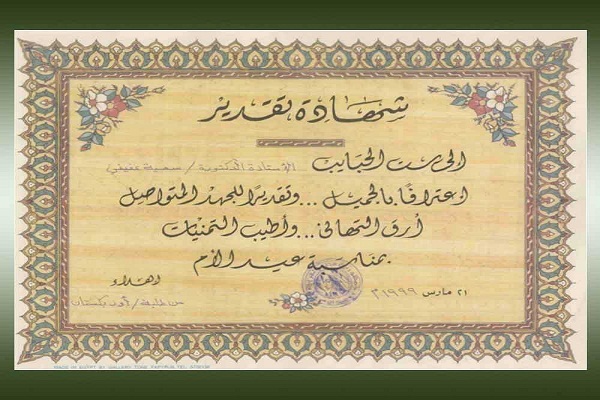 شهادة تقدير
إلى ست الحبايب الأستاذة الدكتورة / سمية عفيفي
إعترافًا بالجميل ... وتقديرًا للجهد المتواصل
أرق التهاني ... وأطيب التمنيات
بمناسبة عيد الأم
اهداء
٢١ مارس ١٩٩٩م
من طلبة / أوزبكستان
MADE IN EGYPT BY